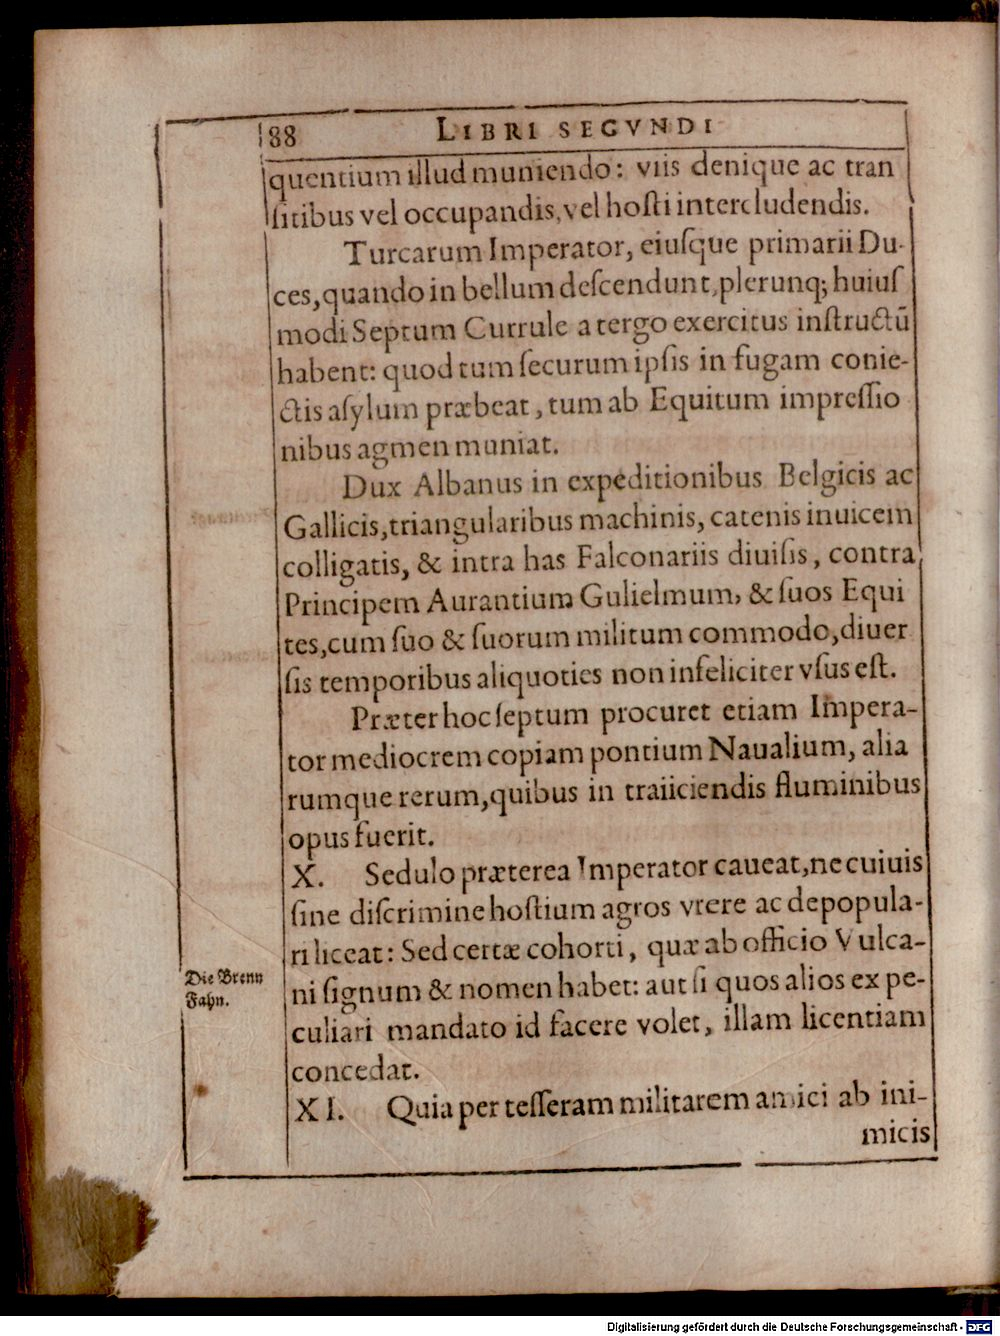 88 LIBRI SEGVNDI
quentium illud muniendo: viis denique ac tran
ſitibus vel occupandis, vel hoſti intercludendis.
Turcarum Imperator, eiuſque primarii Du-
ces, quando in bellum deſcendunt, plerunq; huiuſ
modi Septum Currule a tergo exercitus inſtructū
habent: quod tum ſecurum ipſis in fugam conie-
ctis aſylum præbeat, tum ab Equitum impreſſio
nibus agmen muniat.
Dux Albanus in expeditionibus Belgicis ac
Gallicis, triangularibus machinis, catenis inuicem
colligatis, & intra has Falconariis diuiſis, contra
Principem Aurantium Gulielmum, & ſuos Equi
tes, cum ſuo & ſuorum militum commodo, diuer
ſis temporibus aliquoties non infeliciter vſus eſt.
Præter hoc ſeptum procuret etiam Impera-
tor mediocrem copiam pontium Naualium, alia
rumque rerum, quibus in traiiciendis fluminibus
opus fuerit.
X. Sedulo præterea Imperator caueat, ne cuiuis
ſine diſcrimine hoſtium agros vrere ac depopula-
ri liceat: Sed certæ cohorti, quæ ab officio Vulca-
Die Brenn
Fahn.
ni ſignum & nomen habet: aut ſi quos alios ex pe-
culiari mandato id facere volet, illam licentiam
concedat.
XI. Quia per teſſeram militarem amici ab ini-
micis
Digitalisierung gefördert durch die Deutsche Forschungsgemeinschaft - DFG